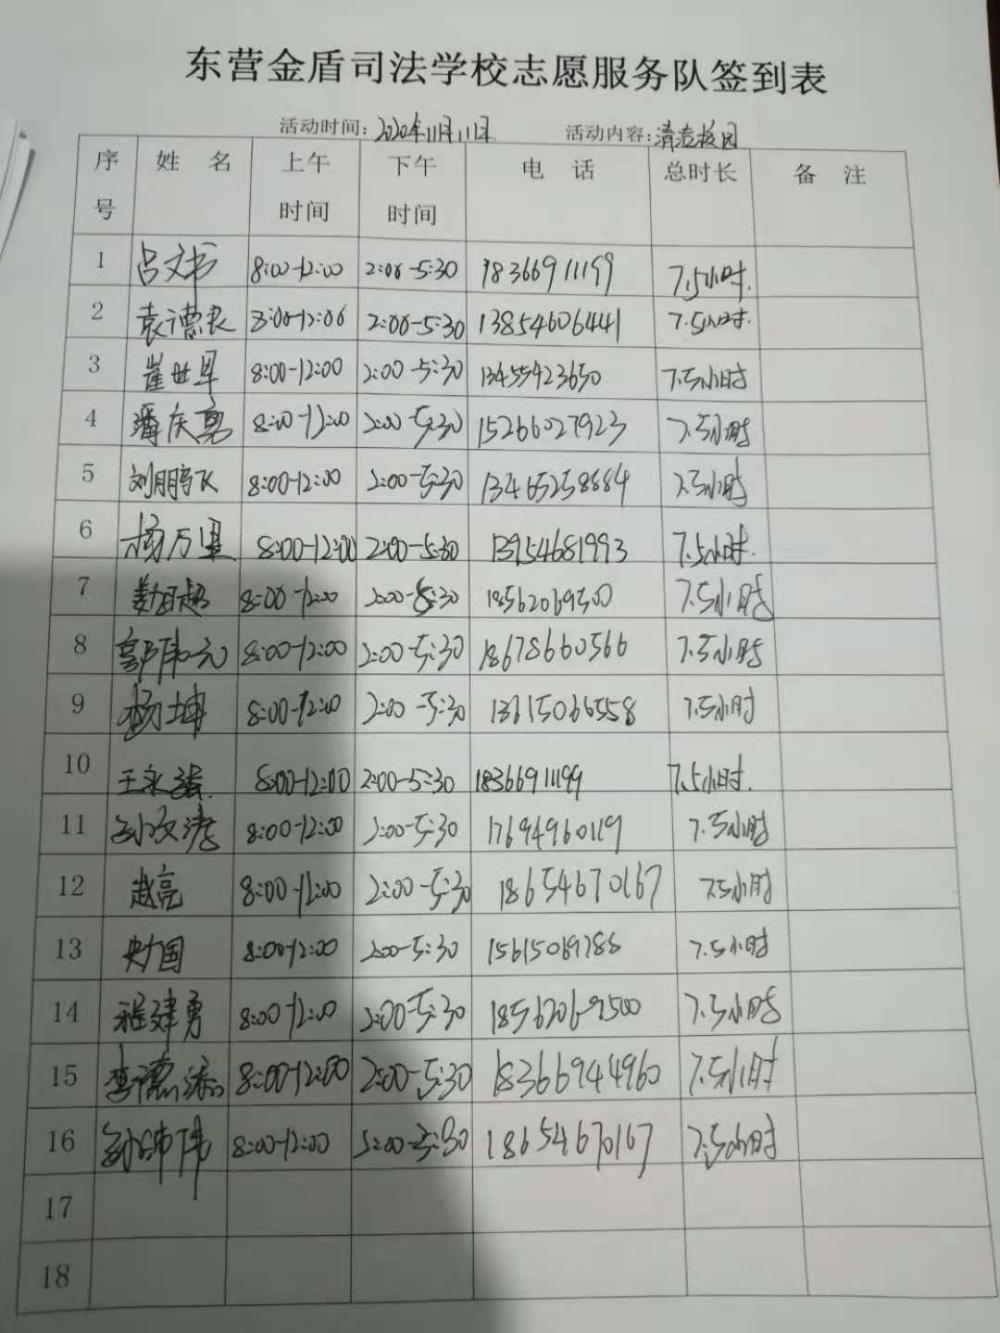 东营金盾司法学校志愿服务队签到表
活动时间：2020年11月11日 活动内容：清洁校园
序号 姓 名 上午时间 下午时间 电 话 总时长 备 注
1 吕文书 8:00-12:00 2:00-5:30 18366911199 7.5小时.
2 袁德良 8:00-12:00 2:00-5:30 13854606441 7.5小时.
3 崔世军 8:00-12:00 2:00-5:30 13455423650 7.5小时
4 潘庆勇 8:00-12:00 2:00-5:30 15266027923 7.5小时
5 刘鹏飞 8:00-12:00 2:00-5:30 13465258684 7.5小时
6 杨万里 8:00-12:00 2:00-5:30 13954681993 7.5小时.
7 8:00-12:00 2:00-5:30 18562069500 7.5小时
8 郭伟元 8:00-12:00 2:00-5:30 18678660566 7.5小时
9 杨坤 8:00-12:00 2:00-5:30 13615066558 7.5小时
10 王永强. 8:00-12:00 2:00-5:30 18366911199 7.5小时.
11 孙文涛 8:00-12:00 2:00-5:30 17694960119 7.5小时
12 赵亮 8:00-12:00 2:00-5:30 18654670167 7.5小时
13 8:00-12:00 2:00-5:30 7.5小时
14 程建勇 8:00-12:00 2:00-5:30 18562069500 7.5小时
15 李德添 8:00-12:00 2:00-5:30 18366944960 7.5小时
16 8:00-12:00 18654670167 7.5小时
17
18